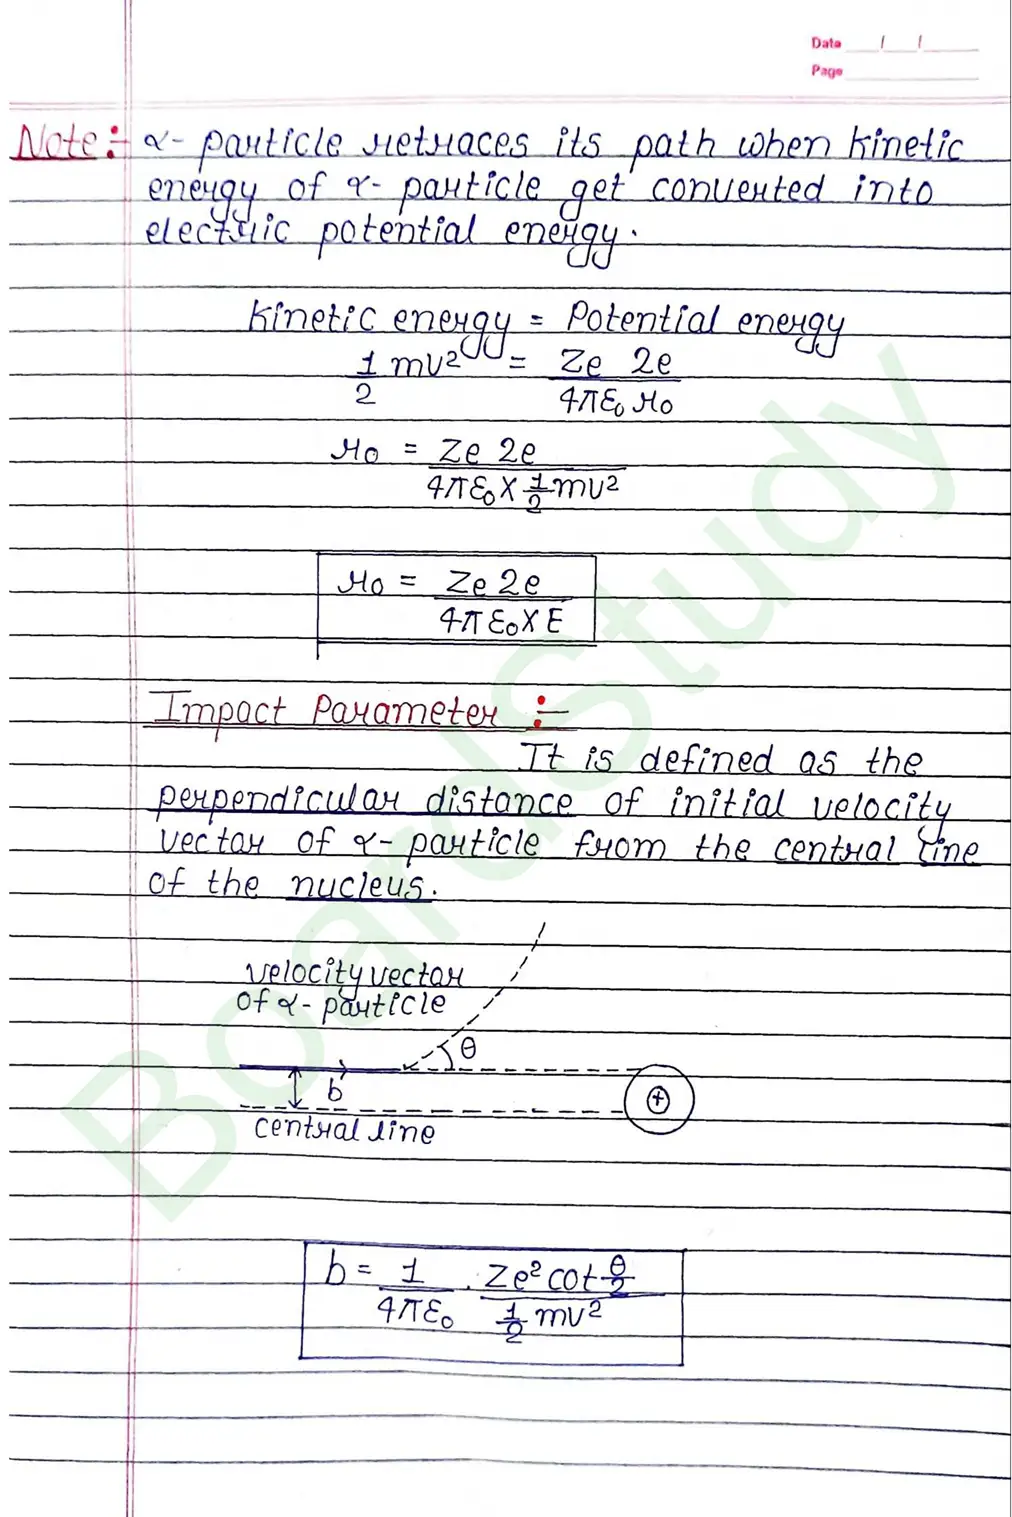 Date / /
Page
Note:- α- particle retraces its path when kinetic
energy of α- particle get converted into
electric potential energy.
Kinetic energy = Potential energy
1/2 mv² = Ze 2e / 4πε₀ r₀
r₀ = Ze 2e / 4πε₀ × 1/2 mv²
r₀ = Ze 2e / 4πε₀ × E
Impact Parameter :-
It is defined as the
perpendicular distance of initial velocity
vector of α- particle from the central line
of the nucleus.
velocity vector
of α- particle
θ
b
+
central line
b = 1/4πε₀ . Ze² cot θ/2 / 1/2 mv²
BoardStudy